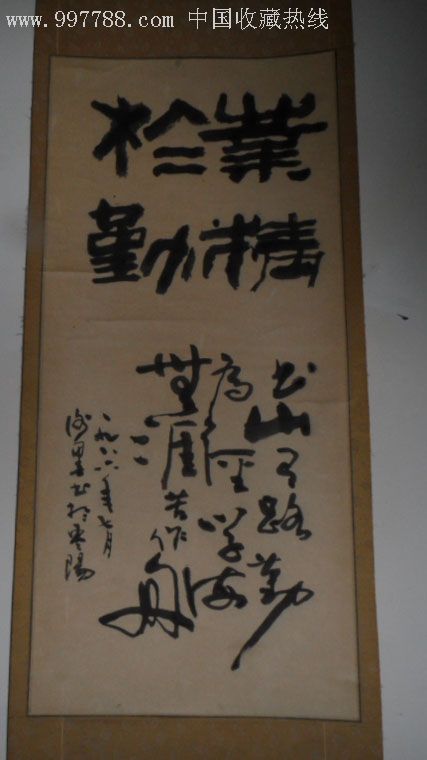 www.997788.com 中国收藏热线
業精
於勤
书山有路勤
為径学海
無涯苦作舟
一九八六年七月
书於枣陽